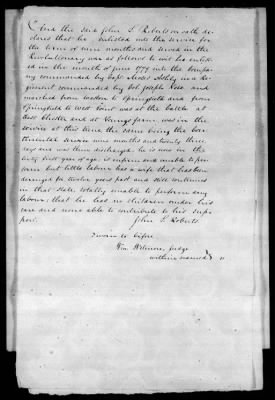 And the said John S. Roberts on oath de-
clares that he enlisted into the service for
the term of nine months and served in the
Revolutionary war as follows to wit he enlist-
ed in the month of june 1779 into the compa-
ny commanded by Capt Moses Ashley in a re-
giment commanded by Col Joseph Vose and
marched from Easton to Springfield and from
Springfield to West Point was at the battle at
West Chester and at Youngs farm was in the
service at this time the same being the Con-
tinental service nine months and twenty three
days and was then discharged. he is now in the
sixty first year of age, is infirm and unable to per-
form but little labour has a wife that has been
deranged for twelve years past and still continues
in that state totally unable to perform any
labour; that he has no children under his
care and none able to contribute to his sup-
port.
John S. Roberts.
Sworn to before
Wm Wilmore, judge
within named